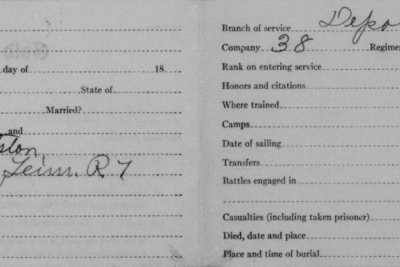 day of 18
State of
Married?
and
Branch of service Depo
Company 38 Regime
Rank on entering service
Honors and citations
Where trained
Camps
Date of sailing
Transfers
Battles engaged in
Casualties (including taken prisoner)
Died, date and place
Place and time of burial